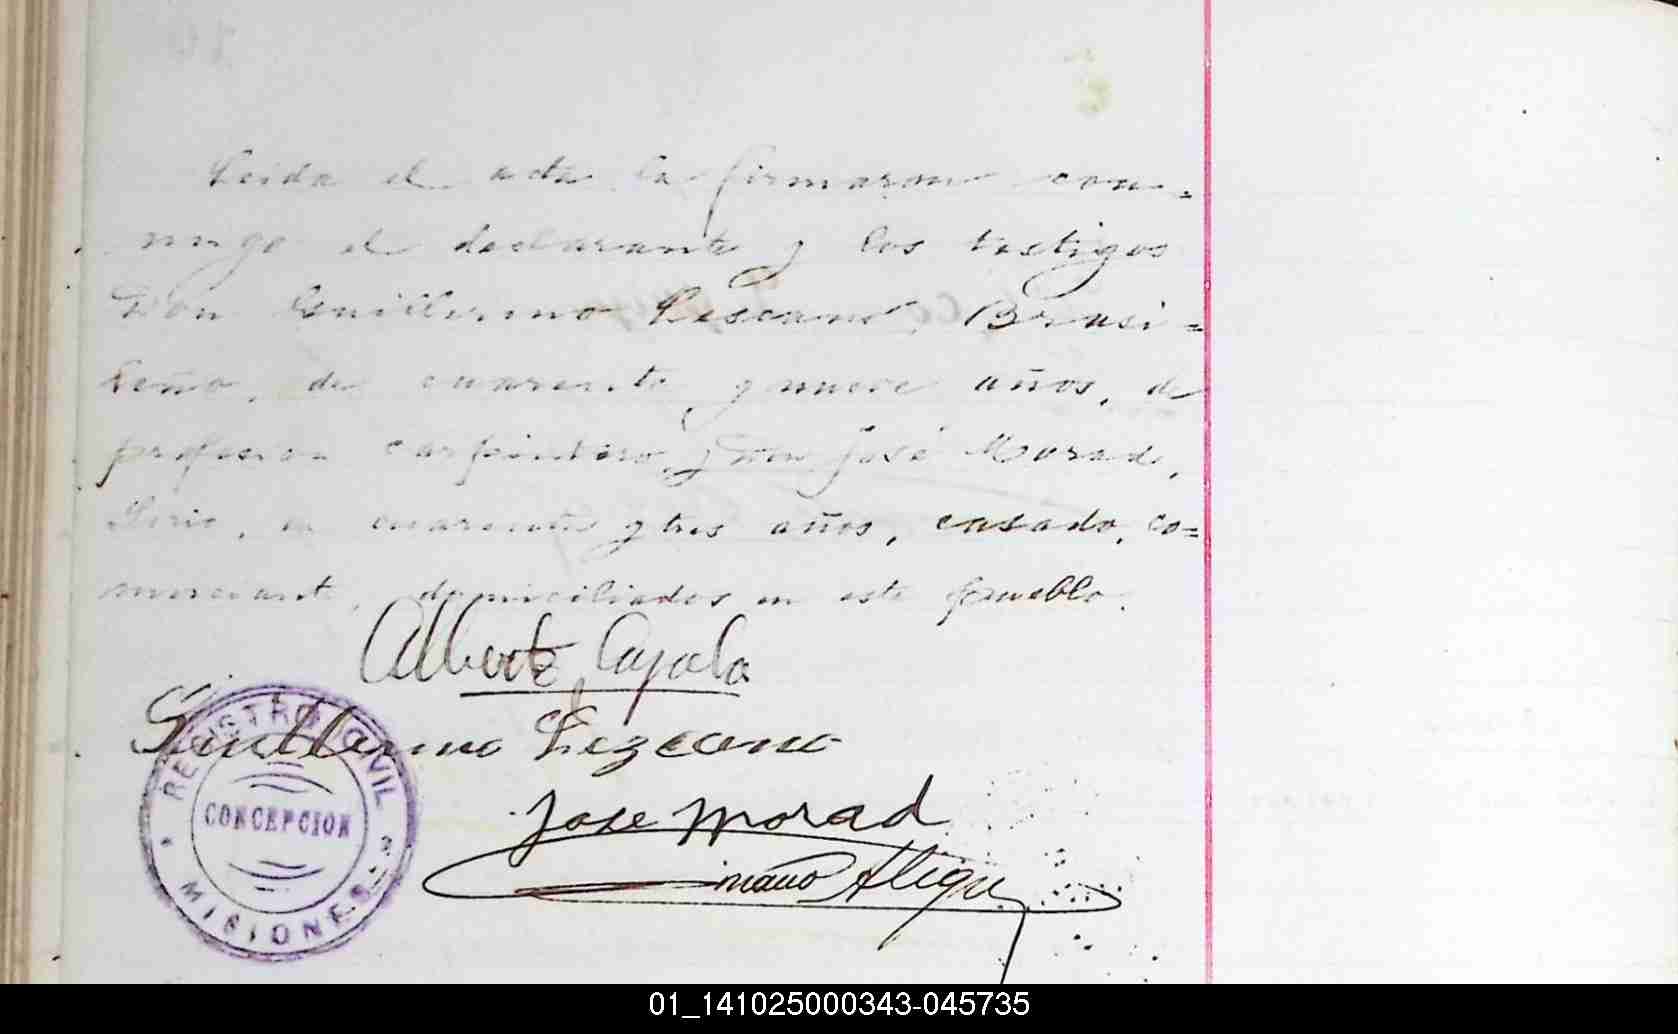 Leida el acta la firmaron con=
migo el declarante y los testigos
Don Guillermo Lescano, Brasi=
leño, de cuarenta y nueve años, de
profesion carpintero y Don José Morade,
Sirio, de cuarenta y tres años, casado, co=
merciante, domiciliados en este pueblo.
Alberto Cayala
Guillermo Lezcano
REGISTRO CIVIL
CONCEPCION
MISIONES
Jose Morad
01_141025000343-045735